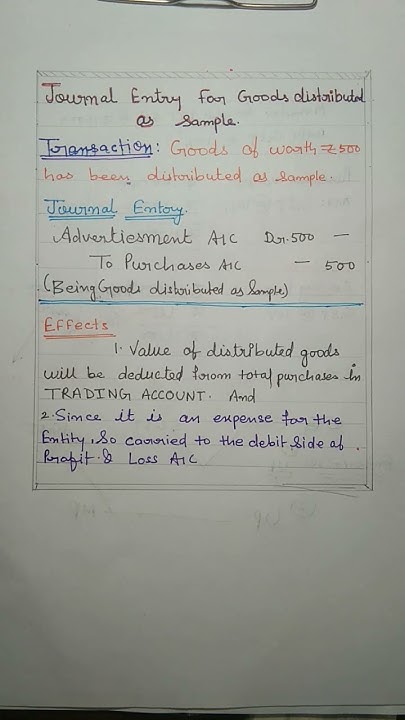 Journal Entry For Goods distributed
as Sample.
Transaction: Goods of worth ₹500
has been distributed as Sample.
Journal Entory.
Advertiesment A/C Dr.500 —
To Purchases A/C — 500
(Being Goods distributed as Sample)
Effects
1. Value of distributed goods
will be deducted from total purchases in
TRADING ACCOUNT. And
2. Since it is an expense for the
Entity, So carried to the debit Side of
Profit & Loss A/C